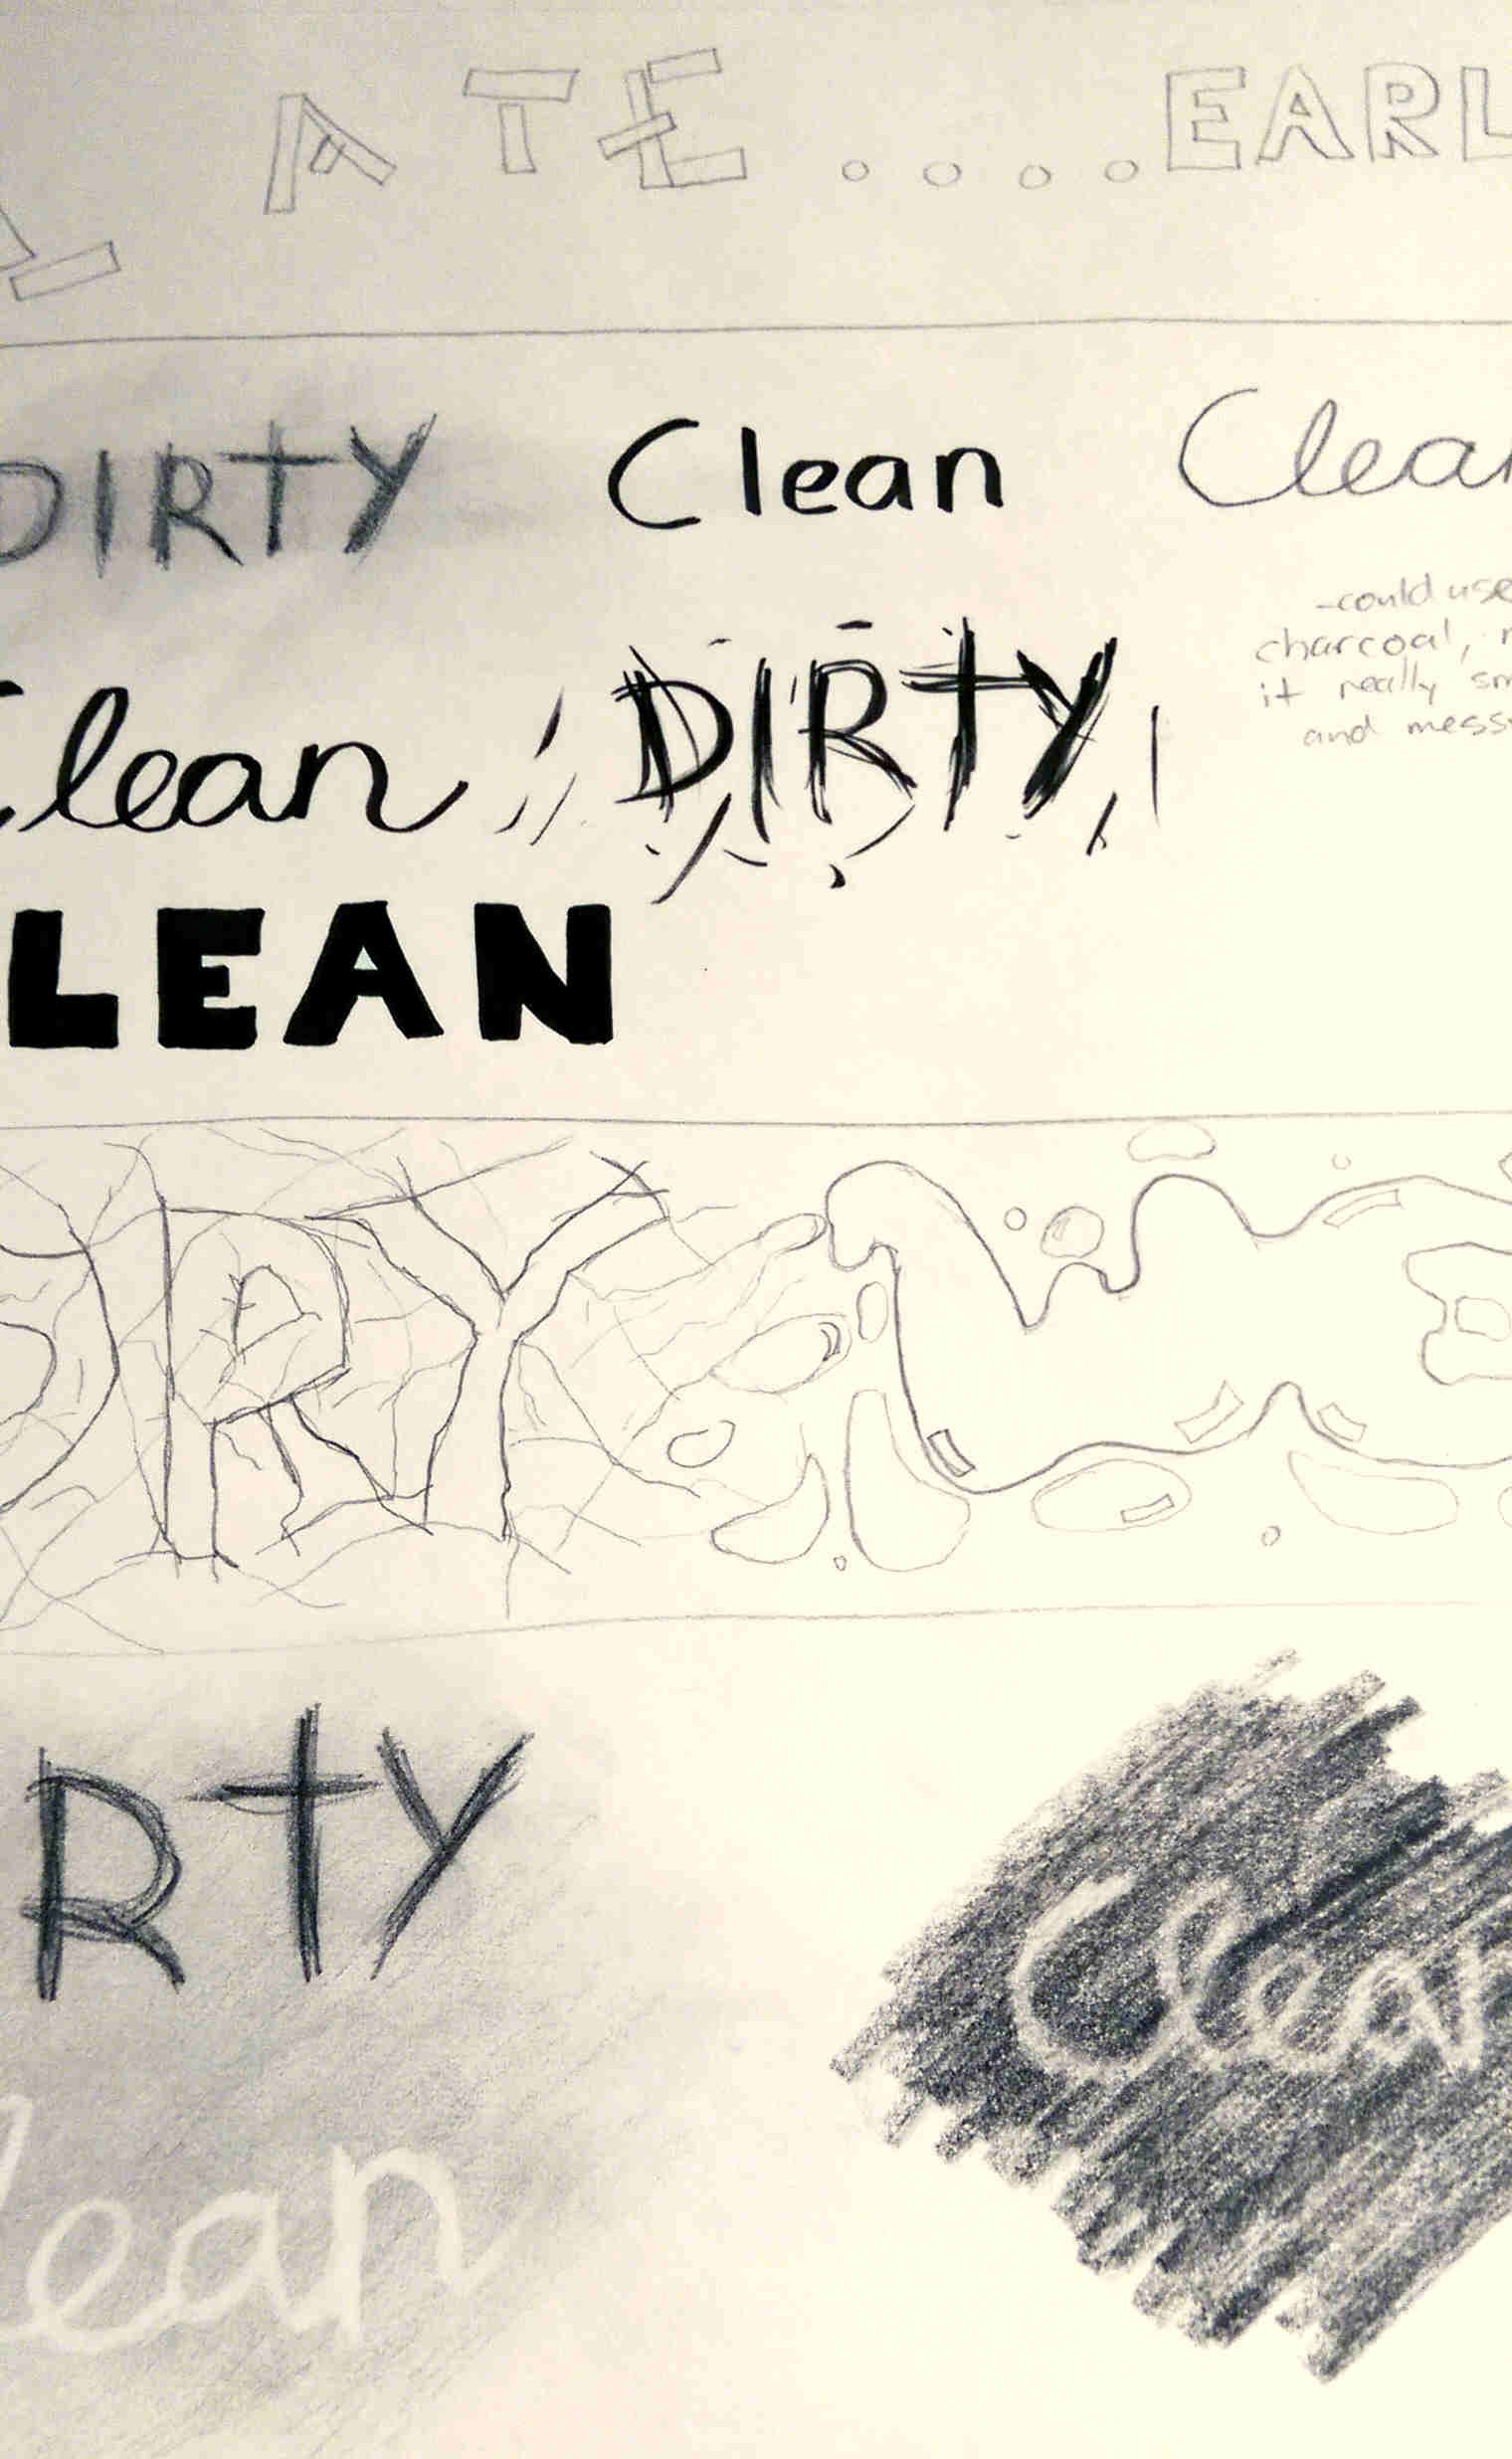 LATE....EARL
DIRTY Clean Clean
-could use
charcoal,
it really
and messy
Clean DIRTY
LEAN
DRY WE
RTY
Clean
lean